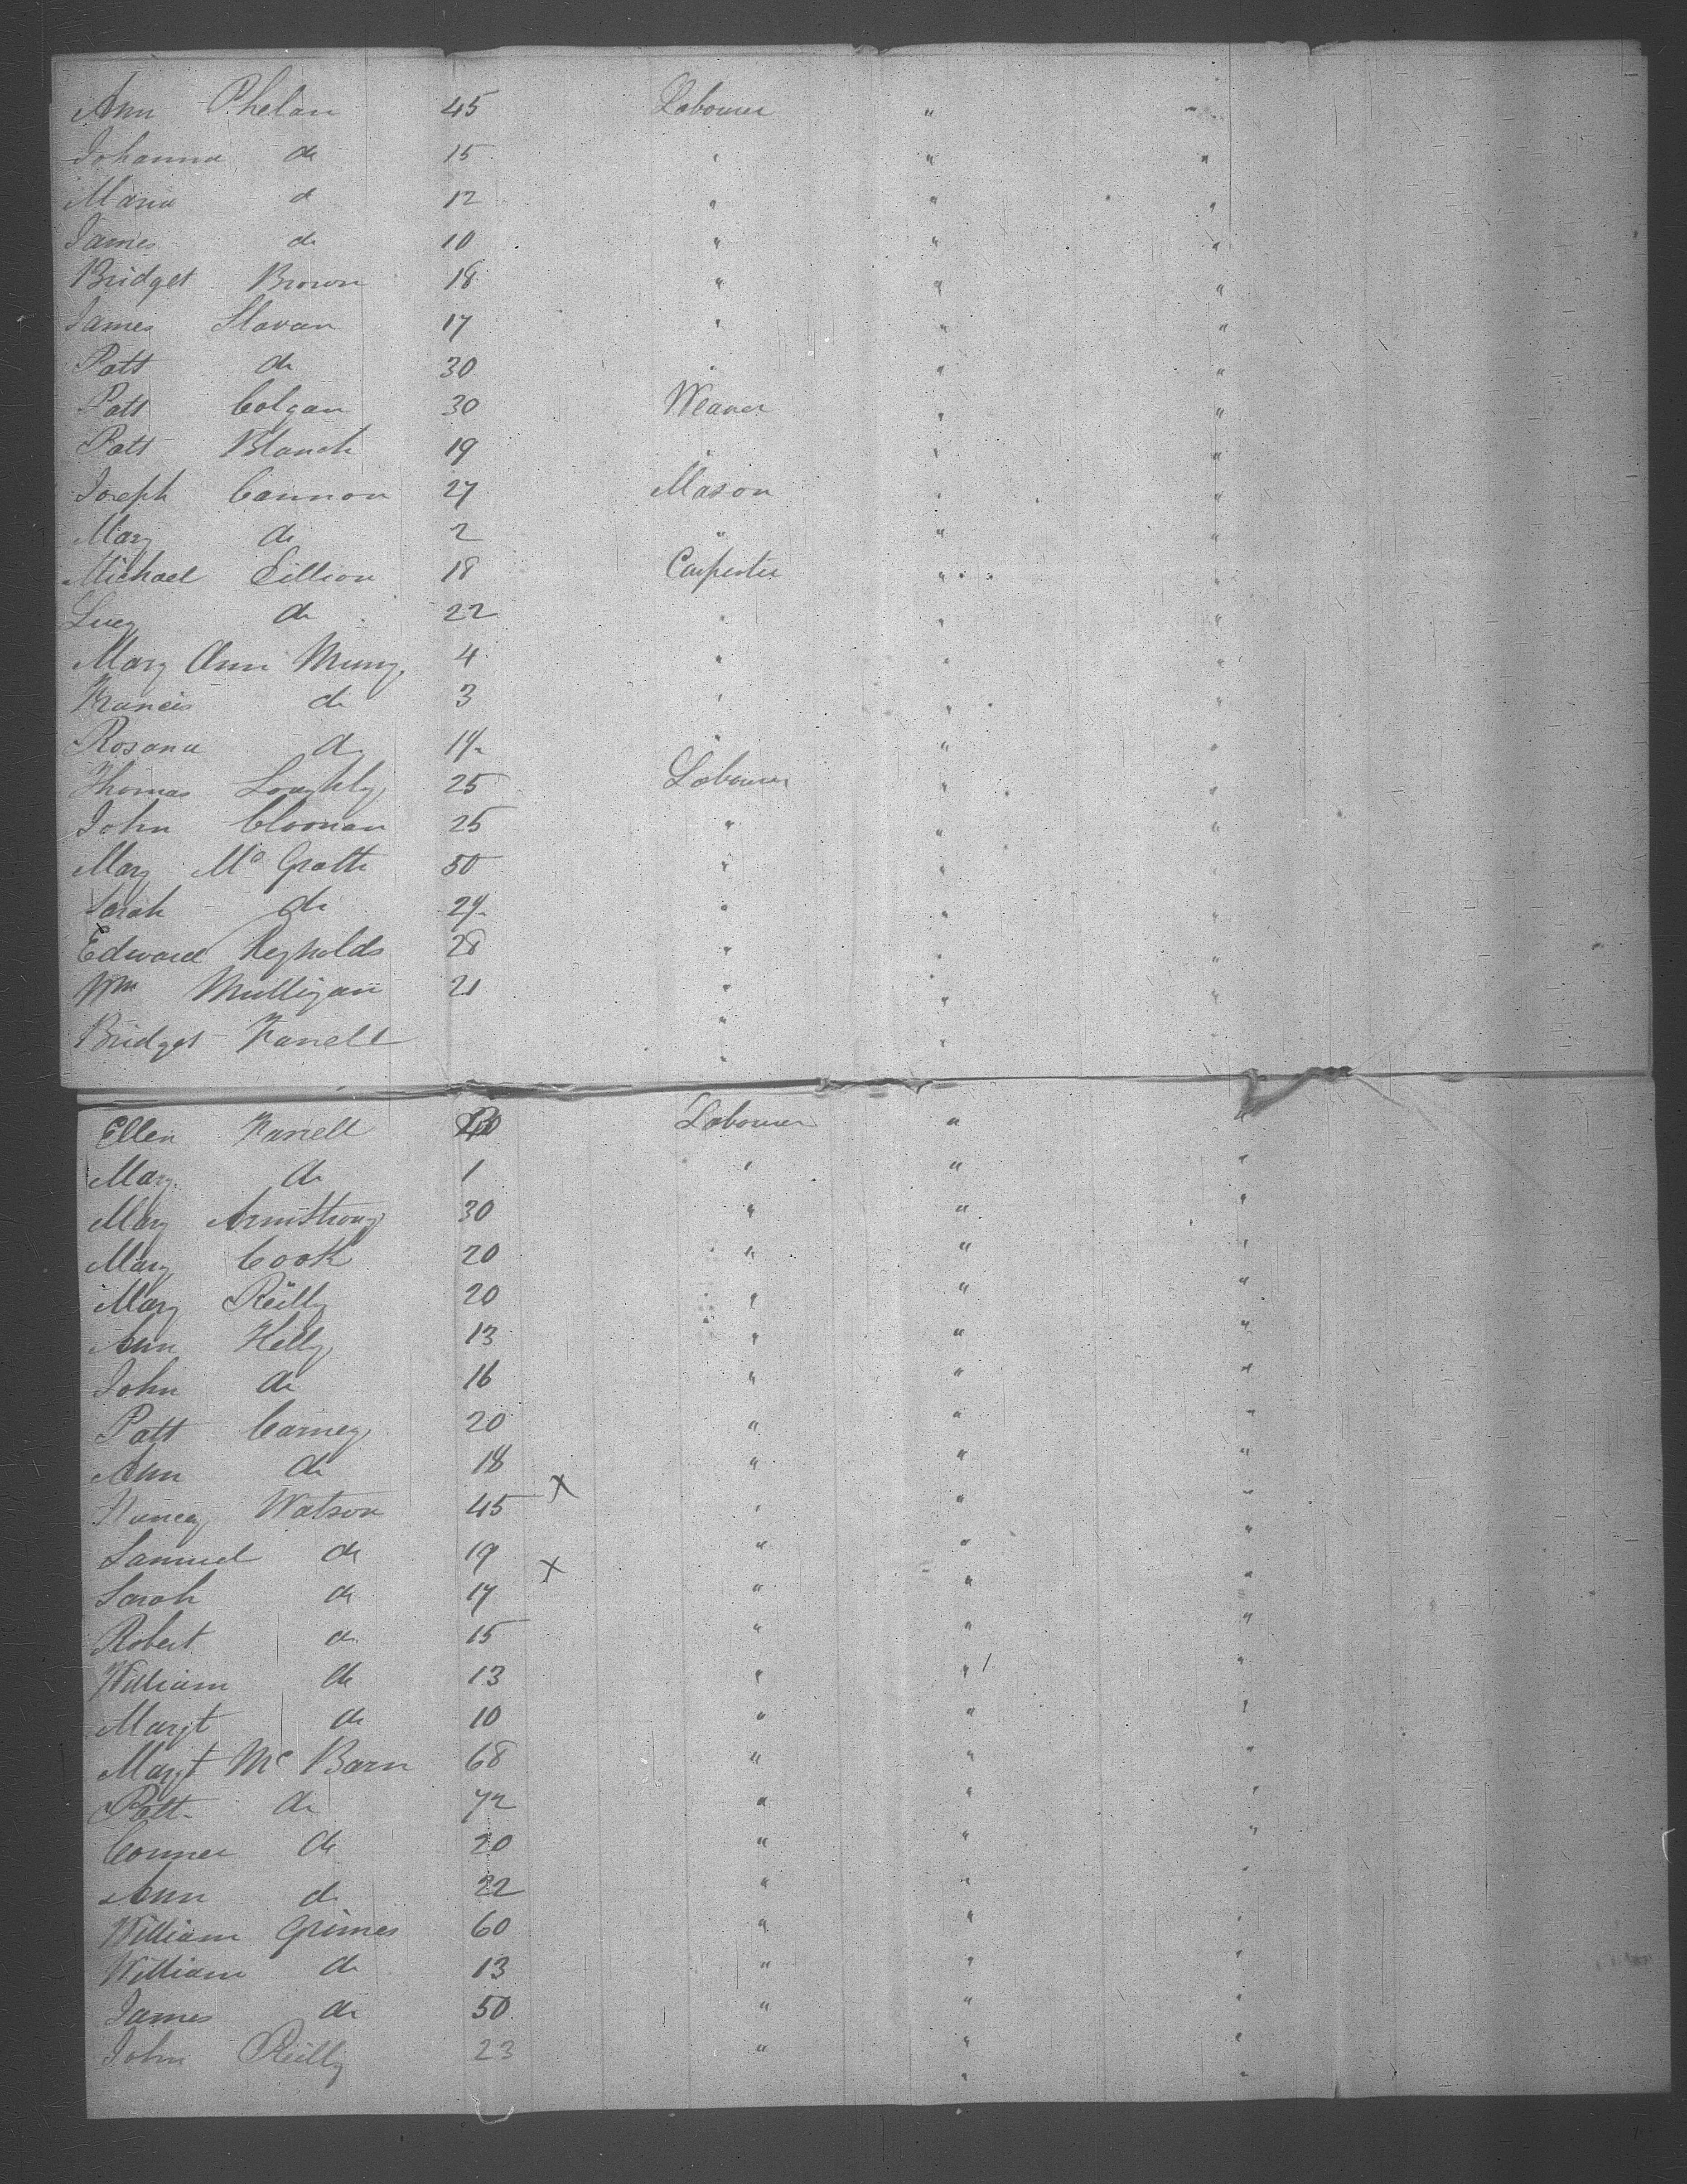 Ann Phelan 45 Labourer " "
Johanna do 15 " " "
Maria do 12 " " "
James do 10 " " "
Bridget Brown 18 " " "
James Slavan 17 " " "
Patt do 30 " " "
Patt Colgan 30 Weaver " "
Patt Blanch 19 " " "
Joseph Cannon 27 Mason " "
Mary do 2 " " "
Michael Cillion 18 Carpenter " "
Lucy do 22 " " "
Mary Ann Muny 4 " " "
Francis do 3 " " "
Rosana do " " "
Thomas Loughly 25 Labourer " "
John Cloonan 25 " " "
Mary Mc Grath 50 " " "
Sarah do " " "
Edward Reynolds 28 " " "
Wm Mulligan 21 " " "
Bridget Farrell " " "
Ellen Farrell Labourer " "
Mary do 1 " " "
Mary Armstrong 30 " " "
Mary Cook 20 " " "
Mary Reilly 20 " " "
Ann Kelly 13 " " "
John do 16 " " "
Patt Carney 20 " " "
Ann do 18 " " "
Nancy Watson 45 x " " "
Samuel do 19 " " "
Sarah do 17 x " " "
Robert do 15 " " "
William do 13 " " "
Margt do 10 " " "
Margt Mc Barn 68 " " "
Patt do 72 " " "
Conner do 20 " " "
Ann do 22 " " "
William Grimes 60 " " "
William do 13 " " "
James do 50 " " "
John Reilly 23 " " "